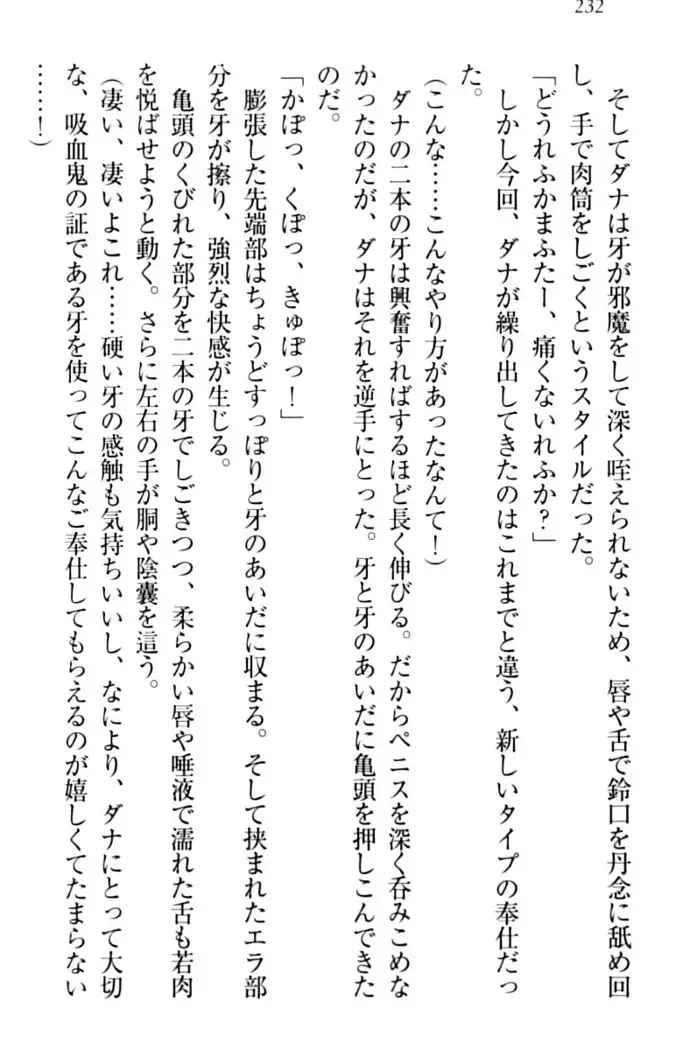 232
そしてダナは牙が邪魔をして深く咥えられないため、唇や舌で鈴口を丹念に舐め回
し、手で肉筒をしごくというスタイルだった。
「どうれふかまふたー、痛くないれふか？」
しかし今回、ダナが繰り出してきたのはこれまでと違う、新しいタイプの奉仕だっ
た。
（こんな……こんなやり方があったなんて！）
ダナの二本の牙は興奮すればするほど長く伸びる。だからペニスを深く呑みこめな
かったのだが、ダナはそれを逆手にとった。牙と牙のあいだに亀頭を押しこんできた
のだ。
「かぽっ、くぽっ、きゅぽっ！」
膨張した先端部はちょうどすっぽりと牙のあいだに収まる。そして挟まれたエラ部
分を牙が擦り、強烈な快感が生じる。
亀頭のくびれた部分を二本の牙でしごきつつ、柔らかい唇や唾液で濡れた舌も若肉
を悦ばせようと動く。さらに左右の手が胴や陰嚢を這う。
（凄い、凄いよこれ……硬い牙の感触も気持ちいいし、なにより、ダナにとって大切
な、吸血鬼の証である牙を使ってこんなご奉仕してもらえるのが嬉しくてたまらない
……！）